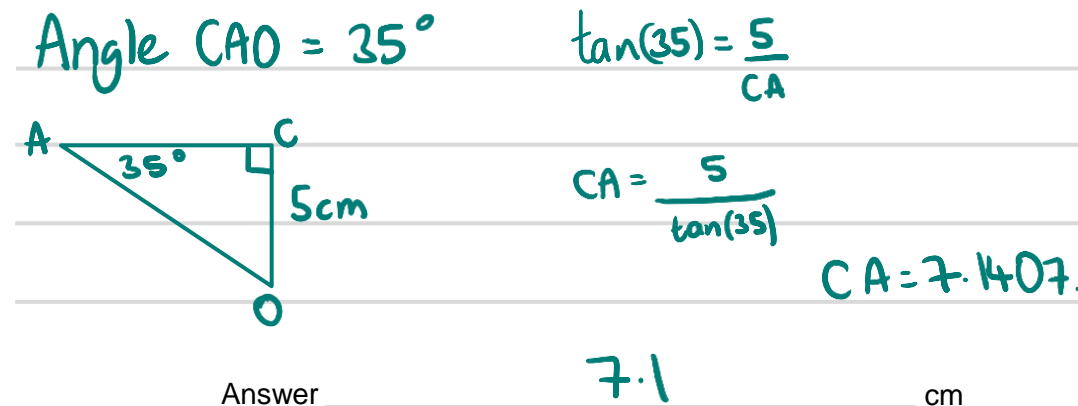 Angle CAO = 35°
tan(35) = 5/CA
A
C
35°
5cm
O
CA = 5/tan(35)
CA = 7.1407.
Answer 7.1 cm